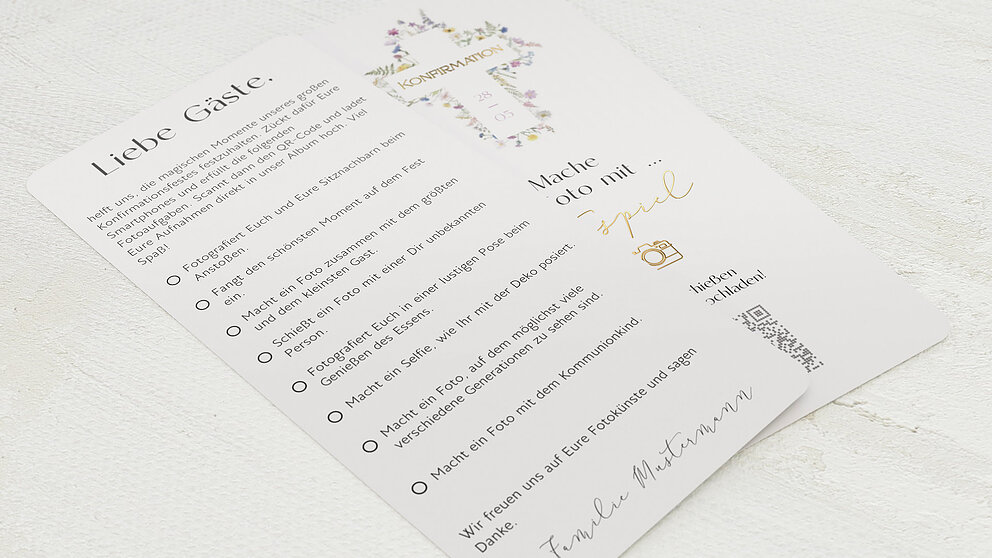 Liebe Gäste,
helft uns, die magischen Momente unseres großen
Konfirmationsfestes festzuhalten. Zückt dafür Eure
Smartphones und erfüllt die folgenden
Fotoaufgaben. Scannt dann den QR-Code und ladet
Eure Aufnahmen direkt in unser Album hoch. Viel
Spaß!
Fotografiert Euch und Eure Sitznachbarn beim
Anstoßen.
Fangt den schönsten Moment auf dem Fest
ein.
Macht ein Foto zusammen mit dem größten
und dem kleinsten Gast.
Schießt ein Foto mit einer Dir unbekannten
Person.
Fotografiert Euch in einer lustigen Pose beim
Genießen des Essens.
Macht ein Selfie, wie Ihr mit der Deko posiert.
Macht ein Foto, auf dem möglichst viele
verschiedene Generationen zu sehen sind.
Macht ein Foto mit dem Kommunionkind.
Wir freuen uns auf Eure Fotokünste und sagen
Danke.
Familie Mustermann
KONFIRMATION
28
05
Mache
oto mit ...
spiel
hießen
ochladen!